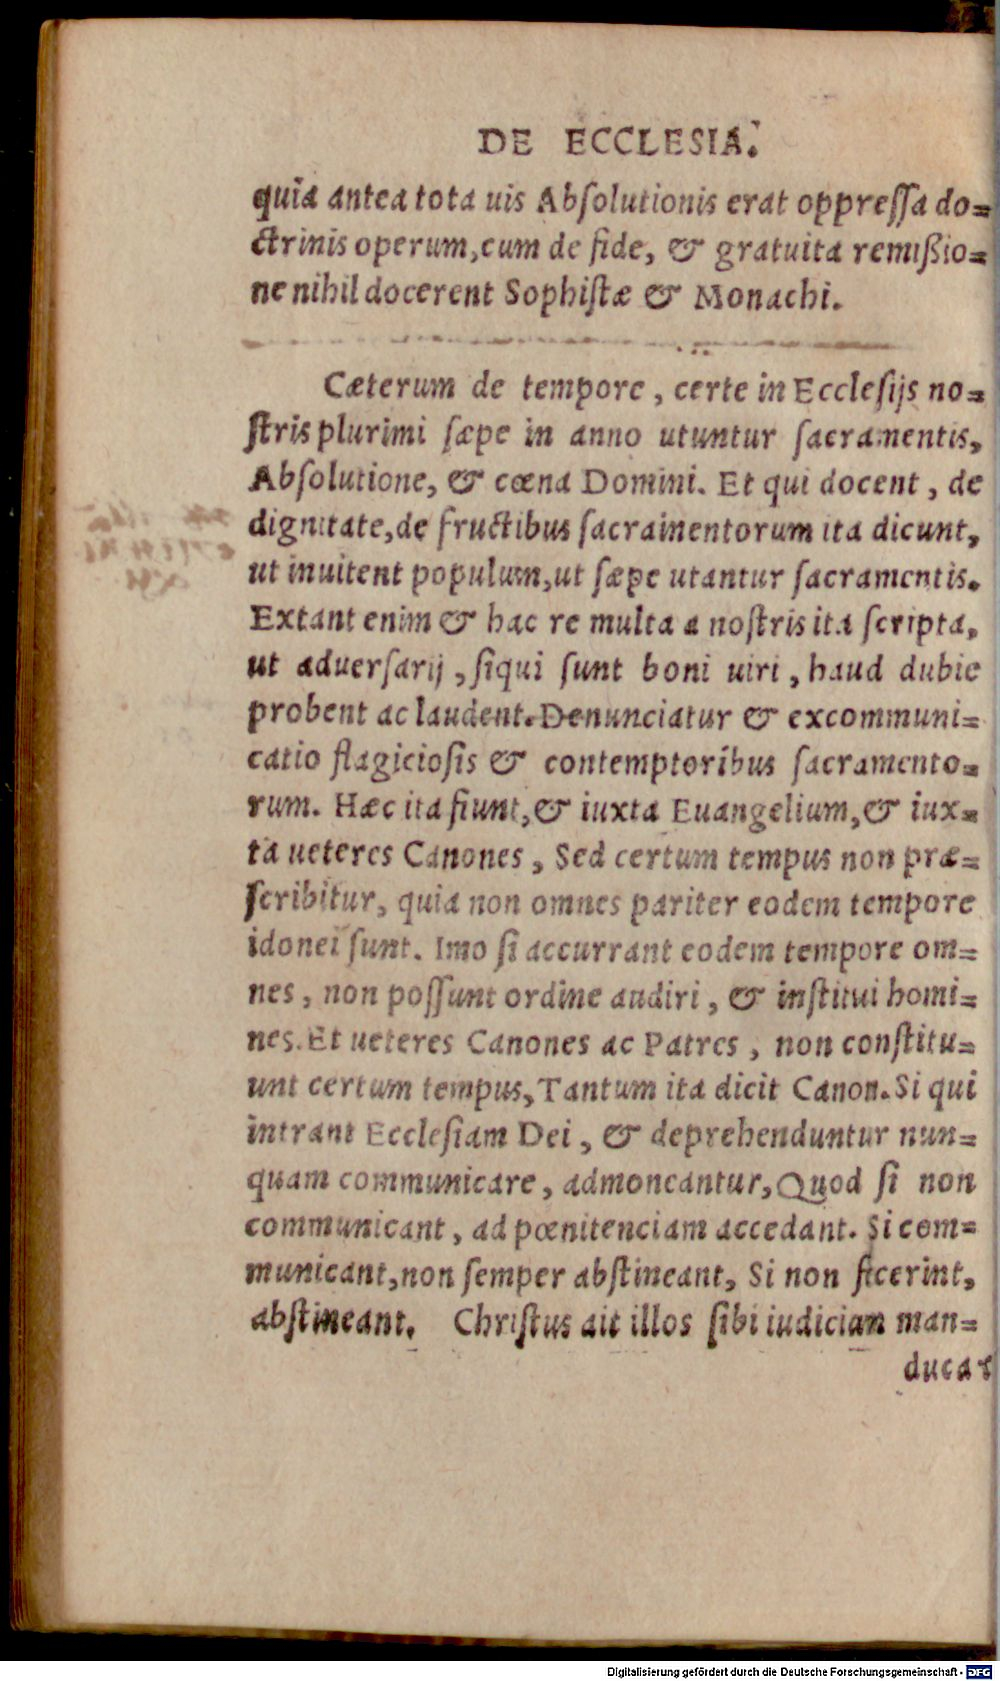 DE ECCLESIA.
quia antea tota uis Absolutionis erat oppressa do=
ctrinis operum, cum de fide, & gratuita remißio=
ne nihil docerent Sophistæ & Monachi.
Cæterum de tempore, certe in Ecclesijs no=
stris plurimi sæpe in anno utuntur sacramentis,
Absolutione, & cœna Domini. Et qui docent, de
dignitate, de fructibus sacramentorum ita dicunt,
ut inuitent populum, ut sæpe utantur sacramentis.
Extant enim & hac re multa a nostris ita scripta,
ut aduersarij, siqui sunt boni uiri, haud dubie
probent ac laudent. Denunciatur & excommuni=
catio flagiciosis & contemptoribus sacramento=
rum. Hæc ita fiunt, & iuxta Euangelium, & iux=
ta ueteres Canones, Sed certum tempus non præ=
scribitur, quia non omnes pariter eodem tempore
idonei sunt. Imo si accurrant eodem tempore om=
nes, non possunt ordine audiri, & institui homi=
nes. Et ueteres Canones ac Patres, non constitu=
unt certum tempus, Tantum ita dicit Canon. Si qui
intrant Ecclesiam Dei, & deprehenduntur nun=
quam communicare, admoneantur, Quod si non
communicant, ad pœnitenciam accedant. Si com=
municant, non semper abstineant, Si non fecerint,
abstineant. Christus ait illos sibi iudicium man=
ducar
Digitalisierung gefördert durch die Deutsche Forschungsgemeinschaft - DFG